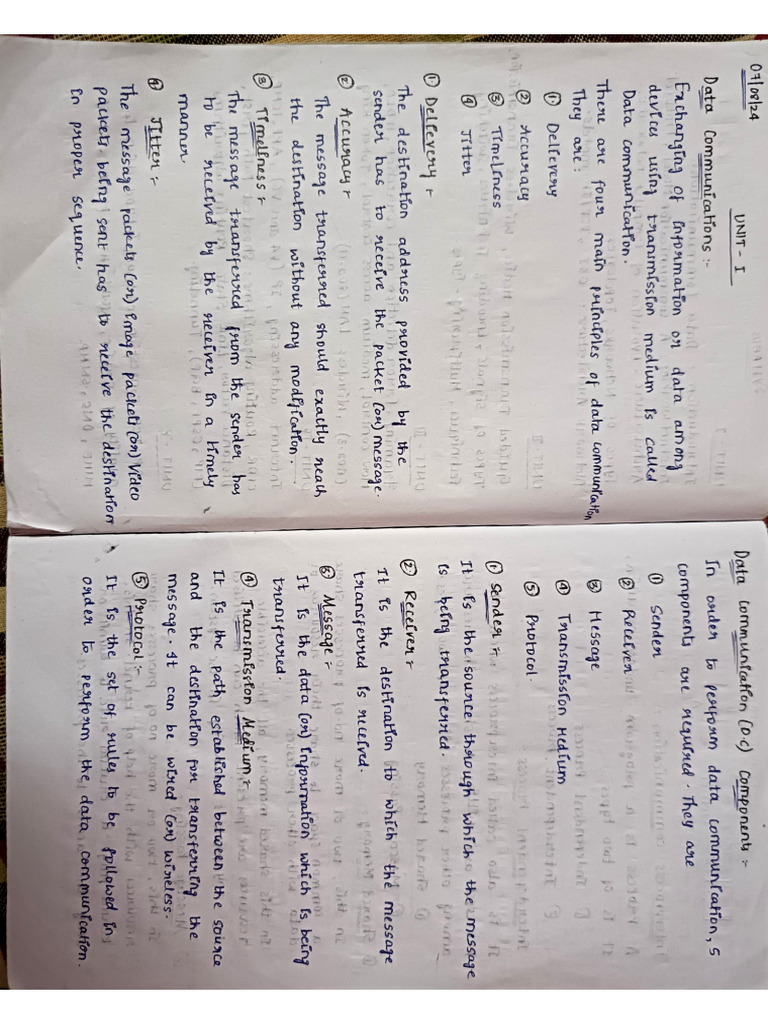 07/08/24
UNIT - I
Data Communications :-
Exchanging of information or data among
devices using transmission medium is called
Data communication.
There are four main principles of data communication
They are :
① Delivery
② Accuracy
③ Timeliness
④ Jitter
① Delivery :-
The destination address provided by the
sender has to receive the packet (or) message.
② Accuracy :-
The message transferred should exactly reach
the destination without any modification.
③ Timeliness :-
The message transferred from the sender has
to be received by the receiver in a timely
manner.
④ Jitter :-
The message packets (or) image packets (or) video
packets being sent has to receive the destination
in proper sequence.
Data communication (D.C) Components :-
In order to perform data communication, 5
components are required. They are
① Sender
② Receiver
③ Message
④ Transmission Medium
⑤ Protocol.
① Sender :-
It is the source through which the message
is being transferred.
② Receiver :-
It is the destination to which the message
transferred is received.
③ Message :-
It is the data (or) information which is being
transferred.
④ Transmission Medium :-
It is the path established between the source
and the destination for transferring the
message. It can be wired (or) wireless.
⑤ Protocol :-
It is the set of rules to be followed in
order to perform the data communication.